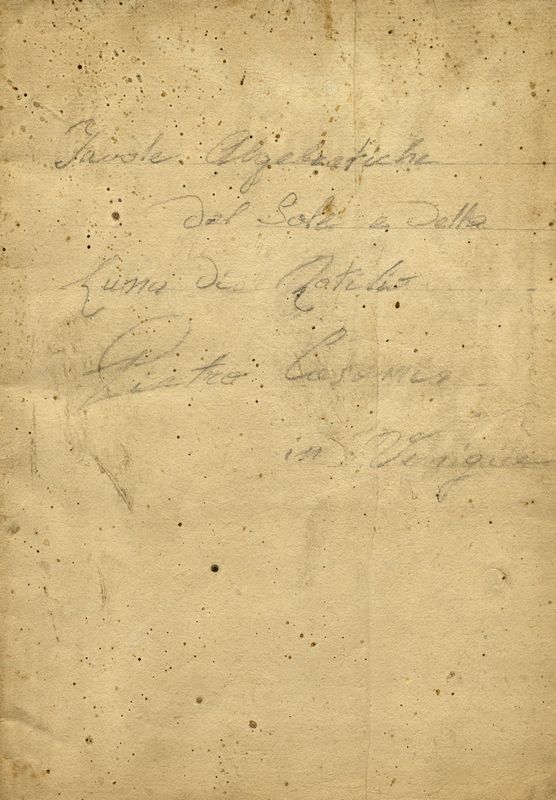 Tavole Algebratiche
del Sole e della
Luna di Rutilio
Pietro Casamia
in